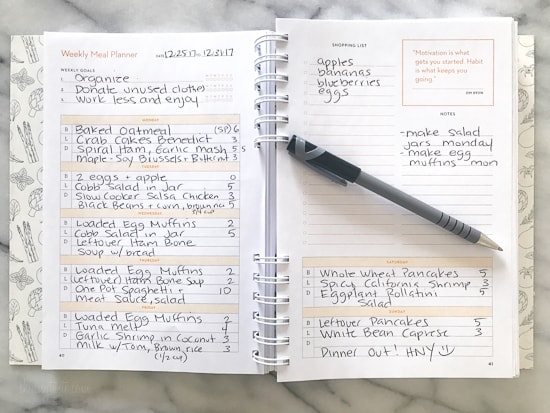 Weekly Meal Planner
DATE 12.25.17 TO 12.31.17
WEEKLY GOALS
1. Organize
2. Donate unused clothes
3. Work less and enjoy
MONDAY
B Baked Oatmeal (SP) 6
L Crab Cakes Benedict 3
D Spiral Ham, Garlic mash 5 5
maple-Soy Brussels + Butternut 3
TUESDAY
B 2 eggs + apple 0
L Cobb Salad in Jar 5
D Slow Cooker Salsa Chicken 3
Black Beans + corn, brown rice 5
3/4 cup
WEDNESDAY
B Loaded Egg Muffins 2
L Cobb Salad in Jar 5
D Leftover Ham Bone
Soup w/bread
THURSDAY
B Loaded Egg Muffins 2
L (Leftover) Ham Bone Soup 2
D One Pot Spaghetti + 10
meat Sauce, salad
FRIDAY
B Loaded Egg Muffins 2
L Tuna melt 4
D Garlic Shrimp in Coconut 3
Milk w/Tom, Brown rice 3
(1/2 cup)
40
SHOPPING LIST
apples
bananas
blueberries
eggs
"Motivation is what
gets you started. Habit
is what keeps you
going."
JIM RYUN
NOTES
-make salad
jars monday
-make egg
muffins mon
SATURDAY
B Whole Wheat Pancakes 5
L Spicy California Shrimp 3
D Eggplant Rollatini 5
Salad
SUNDAY
B Leftover Pancakes 5
L White Bean Caprese 3
D Dinner Out! HNY
41